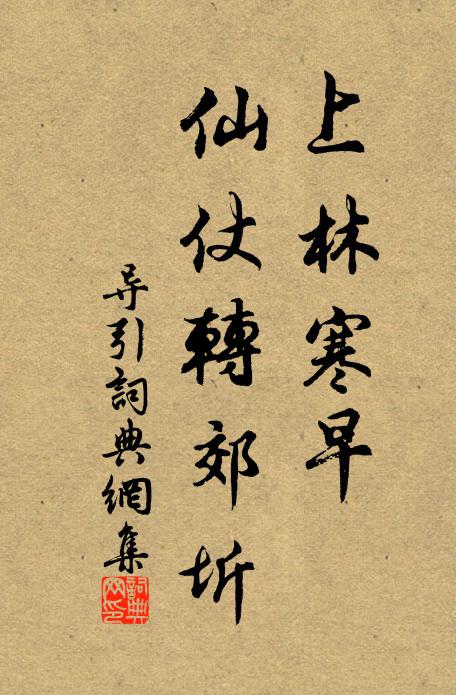 上林寒早
仙仗轉郊圻
导引詞典網集
詞典網印